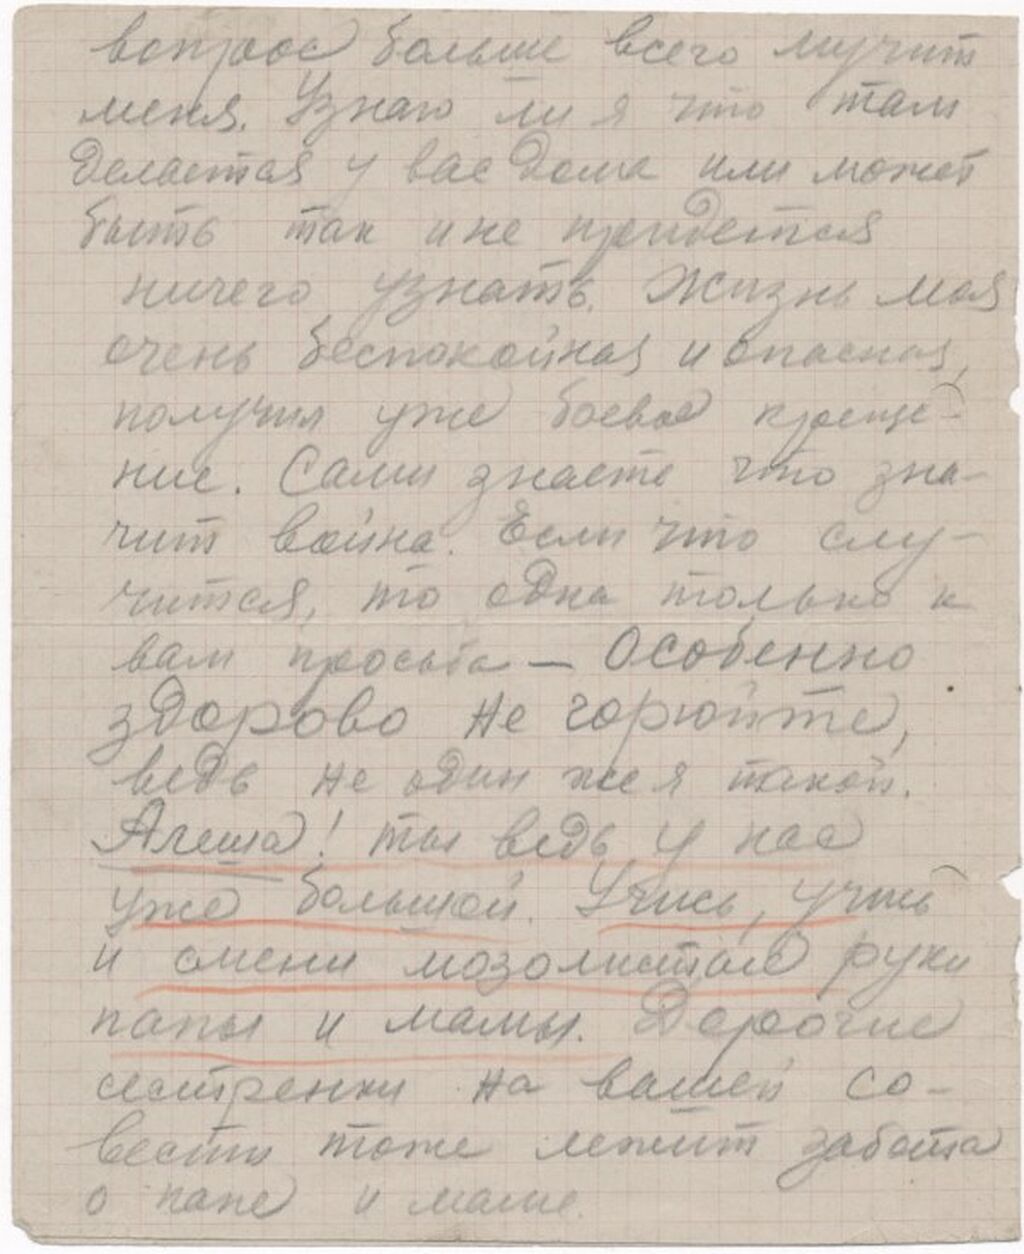 вопрос больше всего мучит
меня. Узнаю ли я что там
делается у вас дома или может
быть так и не прийдется
ничего узнать. Жизнь моя
очень беспокойная и опасная,
получил уже боевое креще-
ние. Сами знаете что зна-
чит война. Если что слу-
чится, то одна только к
вам просьба — Особенно
здорово не горюйте,
ведь не один же я такой.
Алеша! ты ведь у нас
уже большой. Учись, учись
и смени мозолистые руки
папы и мамы. Дорогие
сестренки на вашей со-
вести тоже лежит забота
о папе и маме.